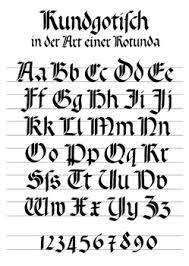 Rundgotiſch
in der Art einer Rotunda
Aa Bb Cc Dd Ee
Ff Gg Hh Ii Jj
Kk Ll Mm Nn
Oo Pp Qq Rr
Sſs Tt Uu Vv
Ww Xx Yy Zz
1234567890